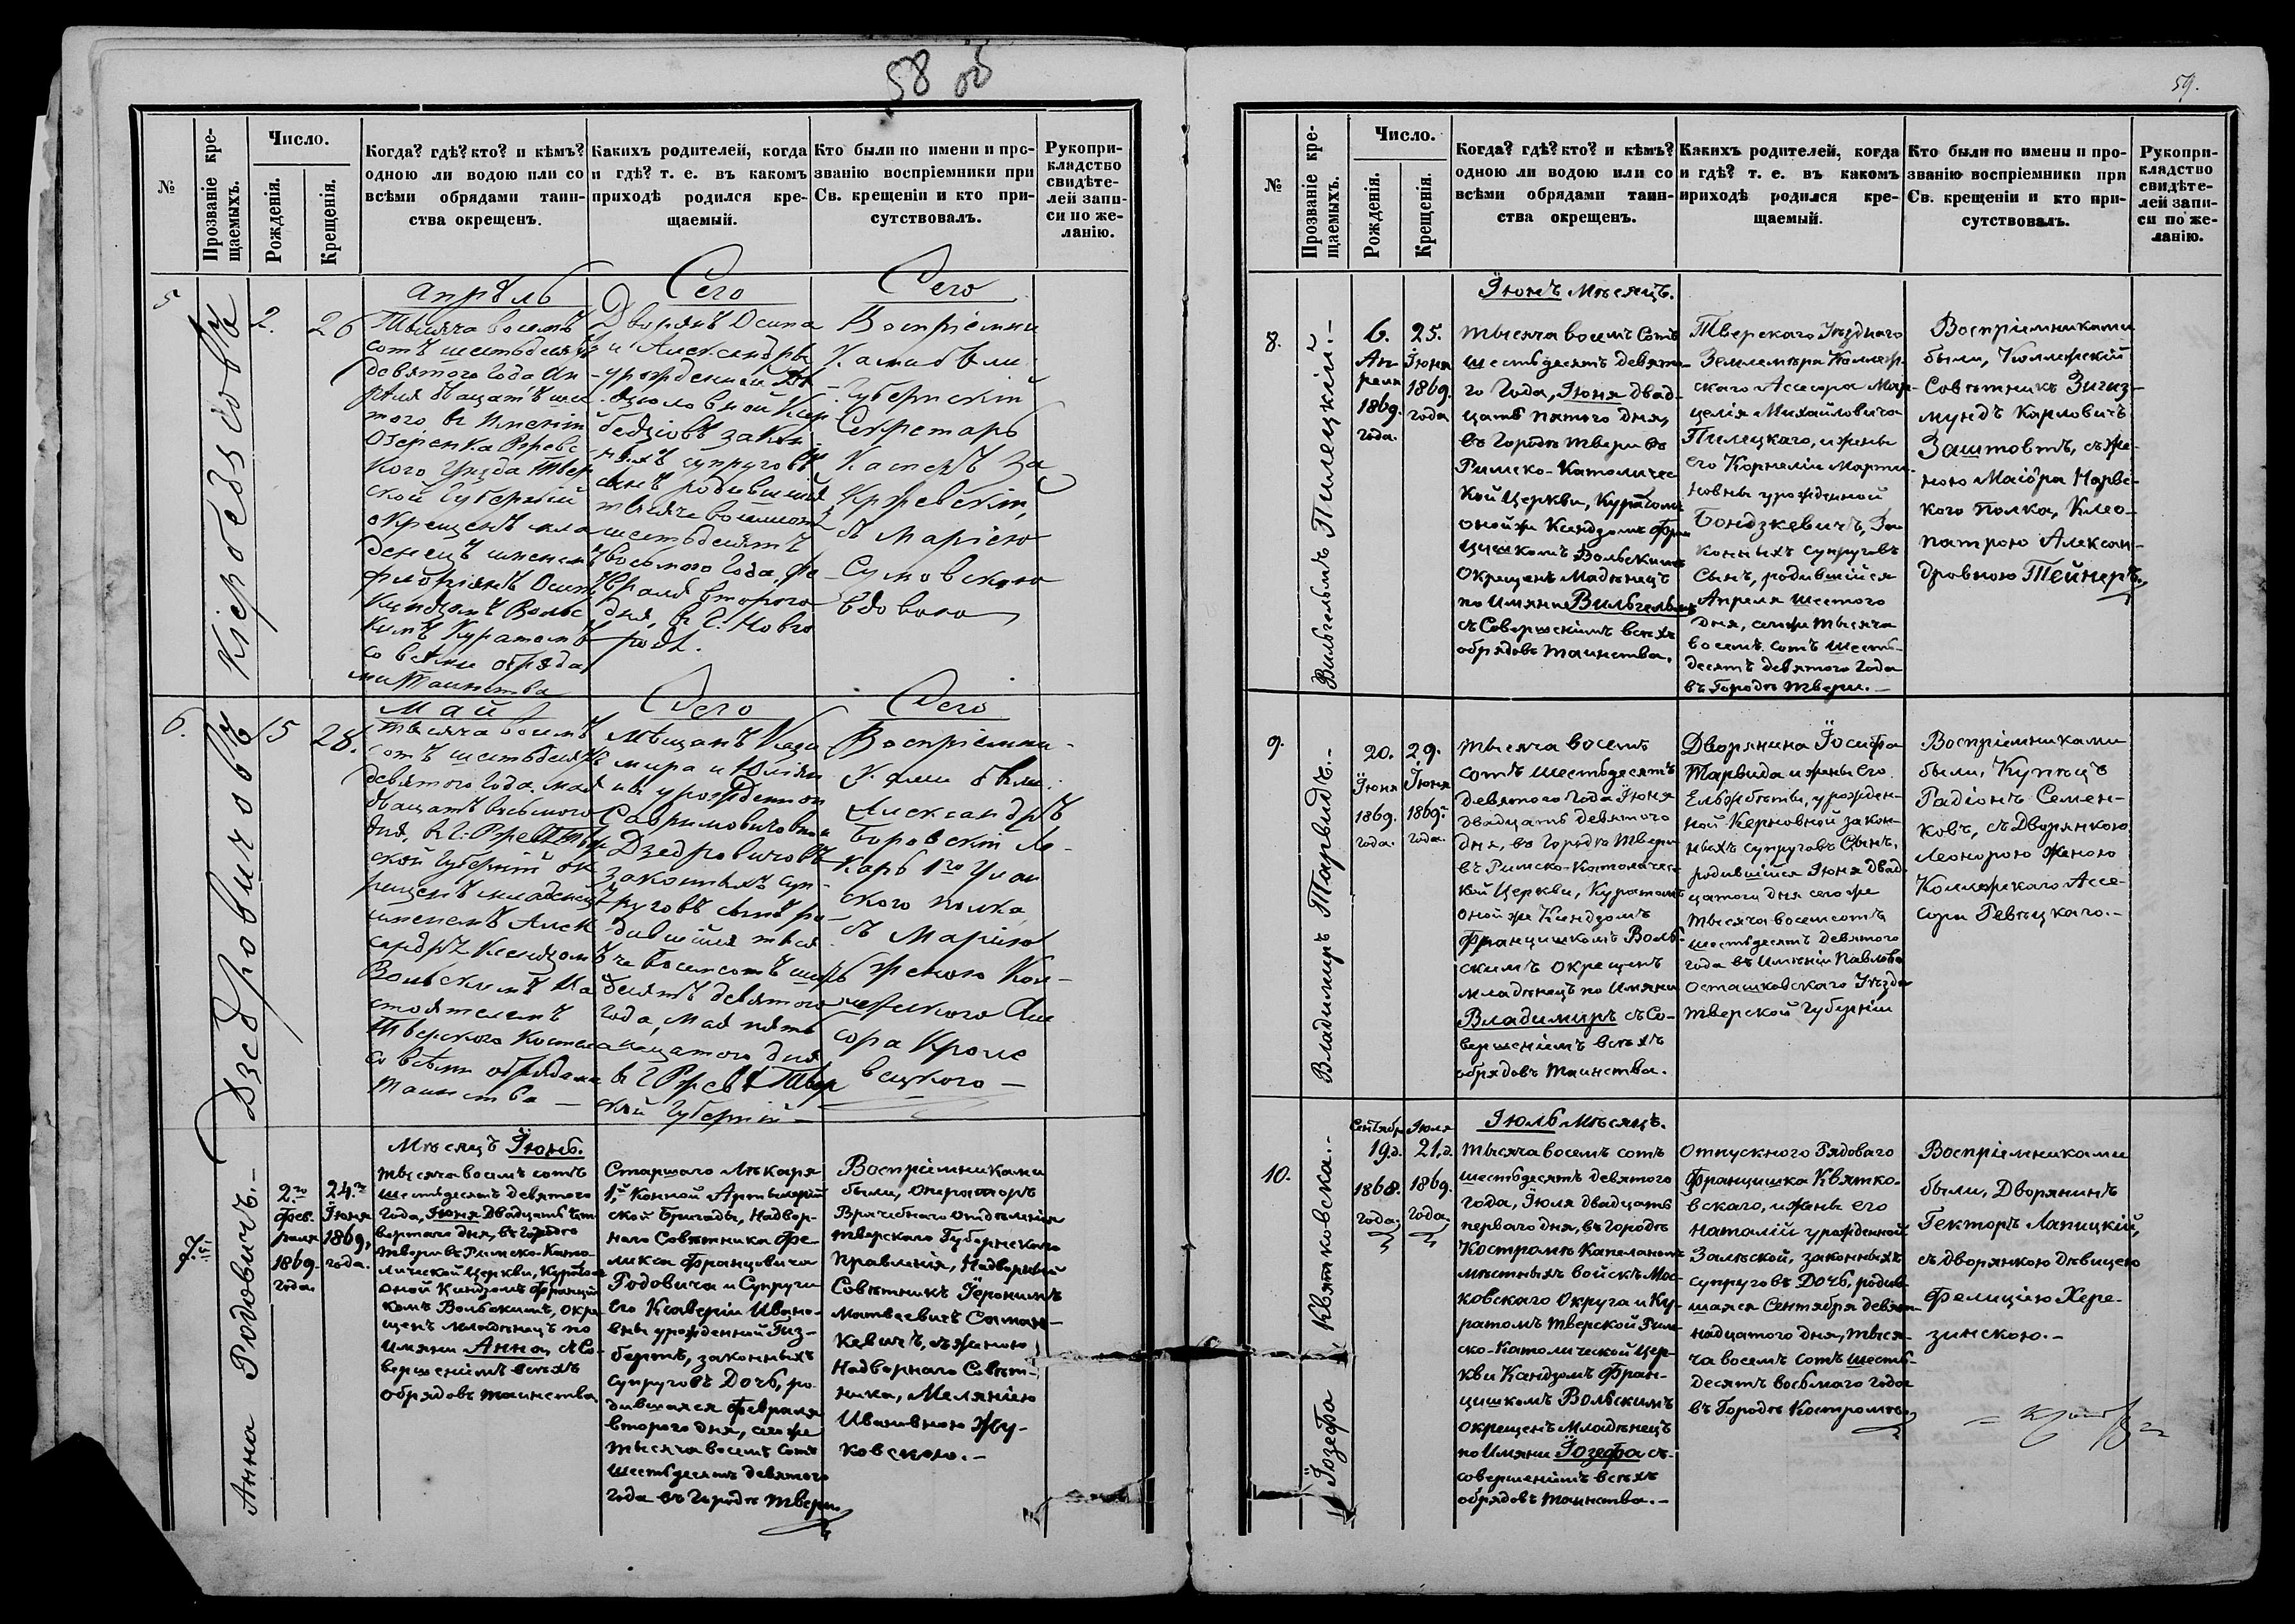 58 об
№
Прозваніе кре-
щаемыхъ.
Число.
Рожденія.
Крещенія.
Когда? гдѣ? кто? и кѣмъ?
одною ли водою или со
всѣми обрядами таин-
ства окрещенъ.
Какихъ родителей, когда
и гдѣ? т. е. въ какомъ
приходѣ родился кре-
щаемый.
Кто были по имени и про-
званію воспріемники при
Св. крещеніи и кто при-
сутствовалъ.
Рукопри-
кладство
свидѣте-
лей запи-
си по же-
ланію.
5
2.
26
Апрѣль
Тысяча восемь
сотъ шестьдесятъ
девятого года Ап
рѣля двацать шес
того въ Имѣніи
Ржевс
кого Уезда Твер
ской Губерніи
окрещенъ мла
денецъ именемъ
Ксендзомъ Вольс
кимъ Куратомъ
со всѣми обряда
ми Таинства
Сего
Дворянъ Осипа
и Александры
урожденной
закон
ныхъ супруговъ
сынъ родившійся
тысяча восемсот
шестьдесятъ
восьмого года Фе
враля второго
дня, въ С: Новго
родѣ.
Сего
Воспріемни
ками были
Губернскій
Секретарь
За
Кржевскій,
съ Маріею
Сумовскою
вдовою
6.
Дзедровичовъ
15
28.
Май
тысяча восемь
сотъ шестьдесятъ
девятого года мая
двацать восьмого
дня, въ Г: Ржевѣ Твер
ской Губерній ок
рещенъ младенецъ
именемъ Алек
сандръ Ксендзомъ
Вольскимъ На
стоятелемъ
Тверского Костела
со всѣми обрядами
Таинства —
Сего
Мѣщанъ Кази
мира и Юліян
ны урожденной
Дзедровичовъ
законныхъ суп-
руговъ сынъ ро
дившійся тыся
ча восемсотъ шесть
десятъ девятого
года, мая пять
надцатого дня
въ Г Ржевѣ Твер
ской Губерній —
Сего
Воспріемни-
ками были
Александръ
Боровскій Ле-
карь 1го Улан
ского полка
съ Маріею
женою Кол-
лежского Асе
сора Кроне
вецкого —
7.
Анна Родовичъ. —
2го
Фев-
раля
1869.
года.
24го
Іюня
1869,
года.
Мѣсяцъ Іюнь.
тысяча восемъ сотъ
шестьдесятъ девятого
Года, Іюня Двадцать чет
вертаго дня, въ городѣ
Твери въ Римско-Като-
лической Церкви, Куратомъ
оной Ксендзомъ Франциш
комъ Вольскимъ, окре
щенъ младѣнецъ по
имяни Анна, съ Со-
вершеніемъ всѣхъ
обрядовъ таинства
Старшаго Лѣкаря
1й Конной Артилерій
ской Бригады, Надвор-
наго Совѣтника Фе-
ликса Францовича
Родовича и Супруги
его Ксаверіи Ивано-
вны урожденной Гиз-
бертъ, законныхъ
супруговъ Дочь, ро-
дившаяся Февраля
второго дня, сегоже
тысяча восемъ сотъ
шестьдесятъ девятого
года въ Городѣ Твери.
Воспріемниками
были, операторъ
Врачебнаго отдѣленія
Тверскаго Губернскаго
Правленія, Надворный
Совѣтникъ Іеронимъ
Матвеевичъ Симаш-
кевичъ, съ женою
Надворнаго Совѣт-
ника, Меляніею
Ивановною Жу-
ковскою. —
59.
№
Прозваніе кре-
щаемыхъ.
Число.
Рожденія.
Крещенія.
Когда? гдѣ? кто? и кѣмъ?
одною ли водою или со
всѣми обрядами таин-
ства окрещенъ.
Какихъ родителей, когда
и гдѣ? т. е. въ какомъ
приходѣ родился кре-
щаемый.
Кто были по имени и про-
званію воспріемники при
Св. крещеніи и кто при-
сутствовалъ.
Рукопри-
кладство
свидѣте-
лей запи-
си по же-
ланію.
8.
Вильгельмъ Пилецкій. —
6.
Ап-
реля
1869.
года.
25.
Іюня
1869.
года
Іюнь Мѣсяцъ.
тысяча восемъ Сотъ
шестьдесятъ девято-
го Года, Іюня двад-
цать пятого дня,
въ Городѣ Твери въ
Римско-Католичес
кой Церкви, Куратомъ
онойже Ксендзомъ Фран
цишкомъ Вольскимъ
окрещенъ Младѣнецъ
по Имяни Вильгельмъ
съ Совершеніемъ всѣхъ
обрядовъ таинства.
Тверскаго Уѣзднаго
Землемѣра Коллеж-
скаго Асесора Мар-
целія Михайловича
Пилецкаго, и жены
его Корнеліи Марти-
новны урожденной
Бондзкевичъ, За-
конныхъ супруговъ
Сынъ, родившійся
Апреля шестого
дня, сегоже тысяча
восемъ сотъ шесть-
десятъ девятого Года
въ Городѣ Твери. —
Воспріемниками
были, Коллежскій
Совѣтникъ Зигиз-
мундъ Карловичъ
Заштовтъ, съ же-
ною Маіора Нарвс-
кого полка, Клео-
патрою Алексан-
дровною Тейнеръ.
9.
Владимиръ Тарвидъ. —
20.
Іюня
1869.
года.
29.
Іюня
1869.
года.
тысяча восемъ
сотъ шестьдесятъ
девятого Года Іюня
двадцать девятого
дня, въ Городѣ Твери
въ Римско-Католичес
кой Церкви, Куратомъ
онойже Ксендзомъ
Францишкомъ Воль-
скимъ окрещенъ
младѣнецъ по Имяни
Владимиръ съ Со-
вершеніемъ всѣхъ
обрядовъ таинства.
Дворянина Іосифа
Тарвида и жены его
Ельжбѣты, урожден-
ной Керновной закон-
ныхъ супруговъ Сынъ,
родившійся Іюня двад-
цатого дня сегоже
тысяча восемсотъ
шестьдесятъ девятого
года въ Имѣніи Павлово
Осташковскаго Уѣзда
Тверской Губерніи
Воспріемниками
были, Купецъ
Радіонъ Семен-
ковъ, съ Дворянкою
Леонорою женою
Коллежскаго Асе-
сора Ревуцкаго. —
10.
Іозефа Квятковска. —
Сентября
19.
1868.
года.
Іюля
21.
1869.
года.
Іюль Мѣсяцъ.
тысяча восемъ сотъ
шестьдесятъ девятого
года, Іюля двадцать
перваго дня, въ городѣ
Костромѣ Капеланомъ
мѣстныхъ войскъ Мос-
ковскаго Округа и Ку-
ратомъ Тверской Рим-
ско-Католической Цер-
кви Ксндзомъ Фран-
цишкомъ Вольскимъ
окрещенъ Младѣнецъ
по Имяни Іозефа съ-
совершеніемъ всѣхъ
обрядовъ таинства. —
Отпускного Рядоваго
Францишка Квятко-
вскаго, и жены его
Наталіи урожденной
Залѣской, законныхъ
супруговъ Дочь, родив-
шаяся Сентября девят-
надцатого дня, тыся-
ча восемъ сотъ шесть-
десятъ восьмаго года
въ Городѣ Костромѣ.
Воспріемниками
были, Дворянинъ
Гекторъ Лапицкій,
съ дворянкою дѣвицею
Фелиціею Хере-
зинскою. —